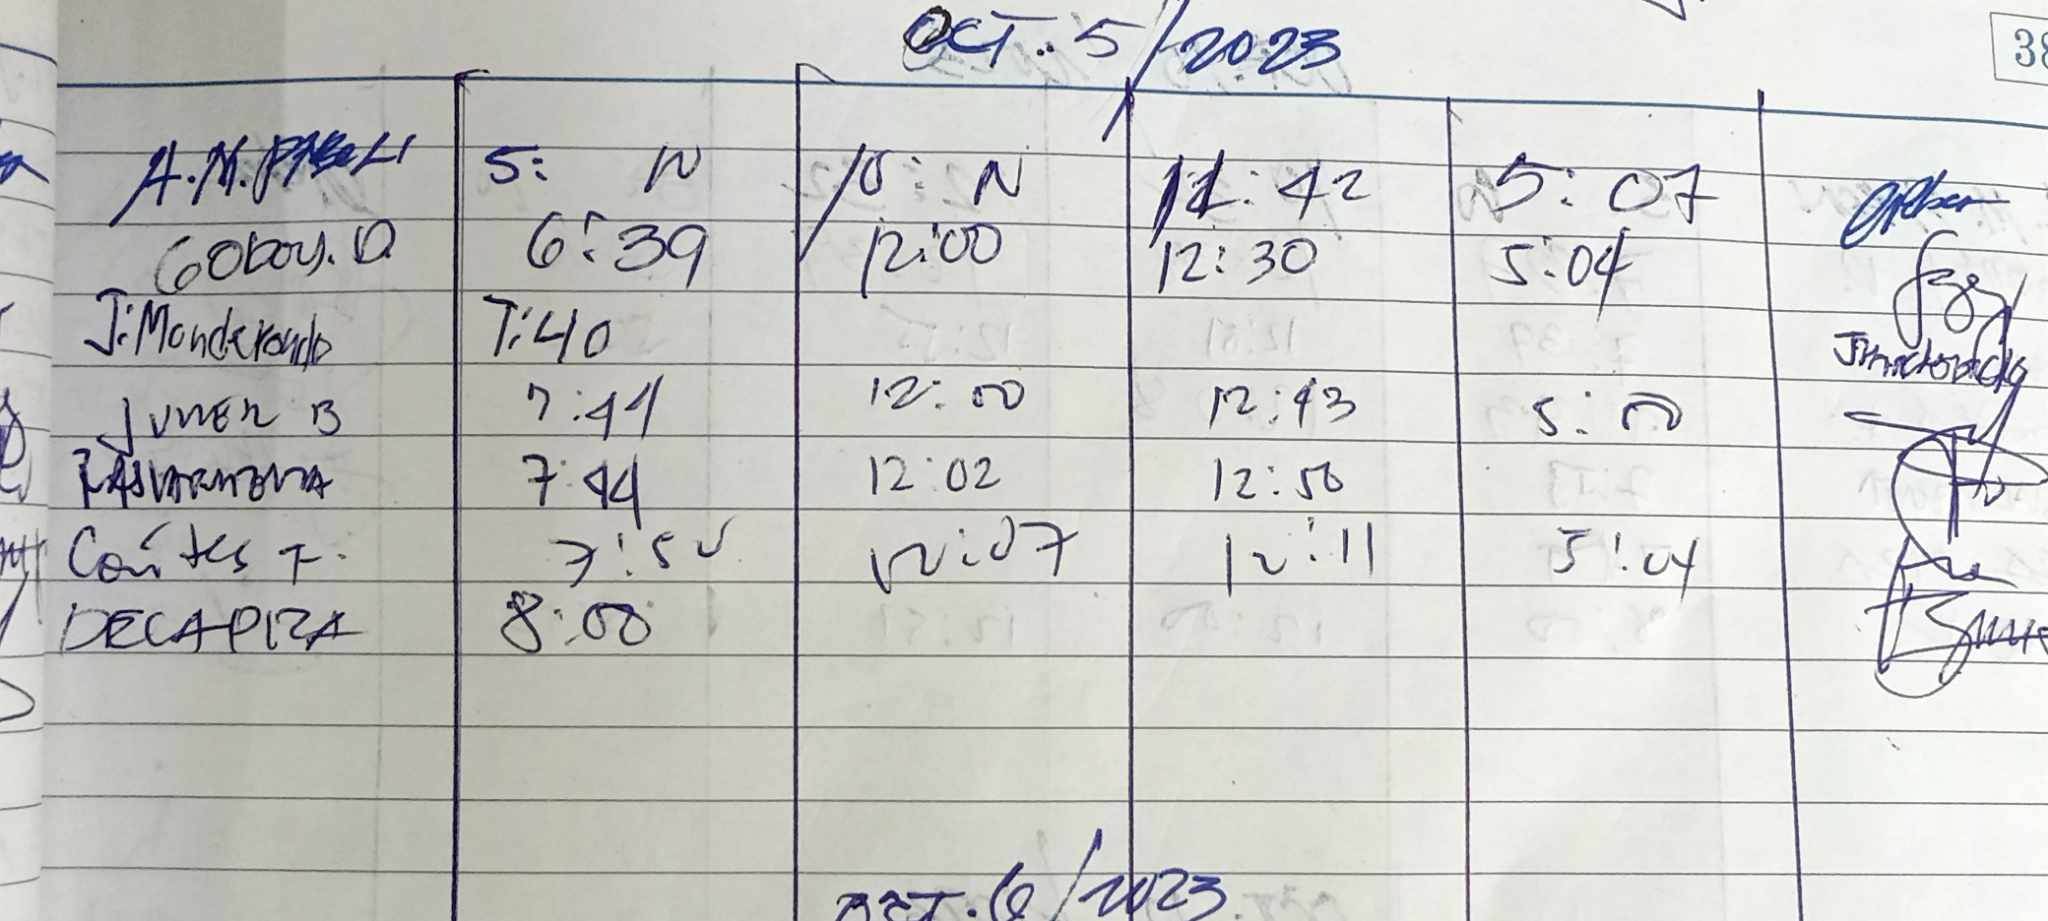 OCT. 5/2023
38
5: N 10: N 11:42 5:07
Goboy. D 6:39 12:00 12:30 5:04
J. Monderondo 7:40
JUNER B 7:44 12:00 12:43 5:00
7:44 12:02 12:50
7:50 12:07 12:11 5:04
DECAPIZA 8:00
OCT. 6/2023